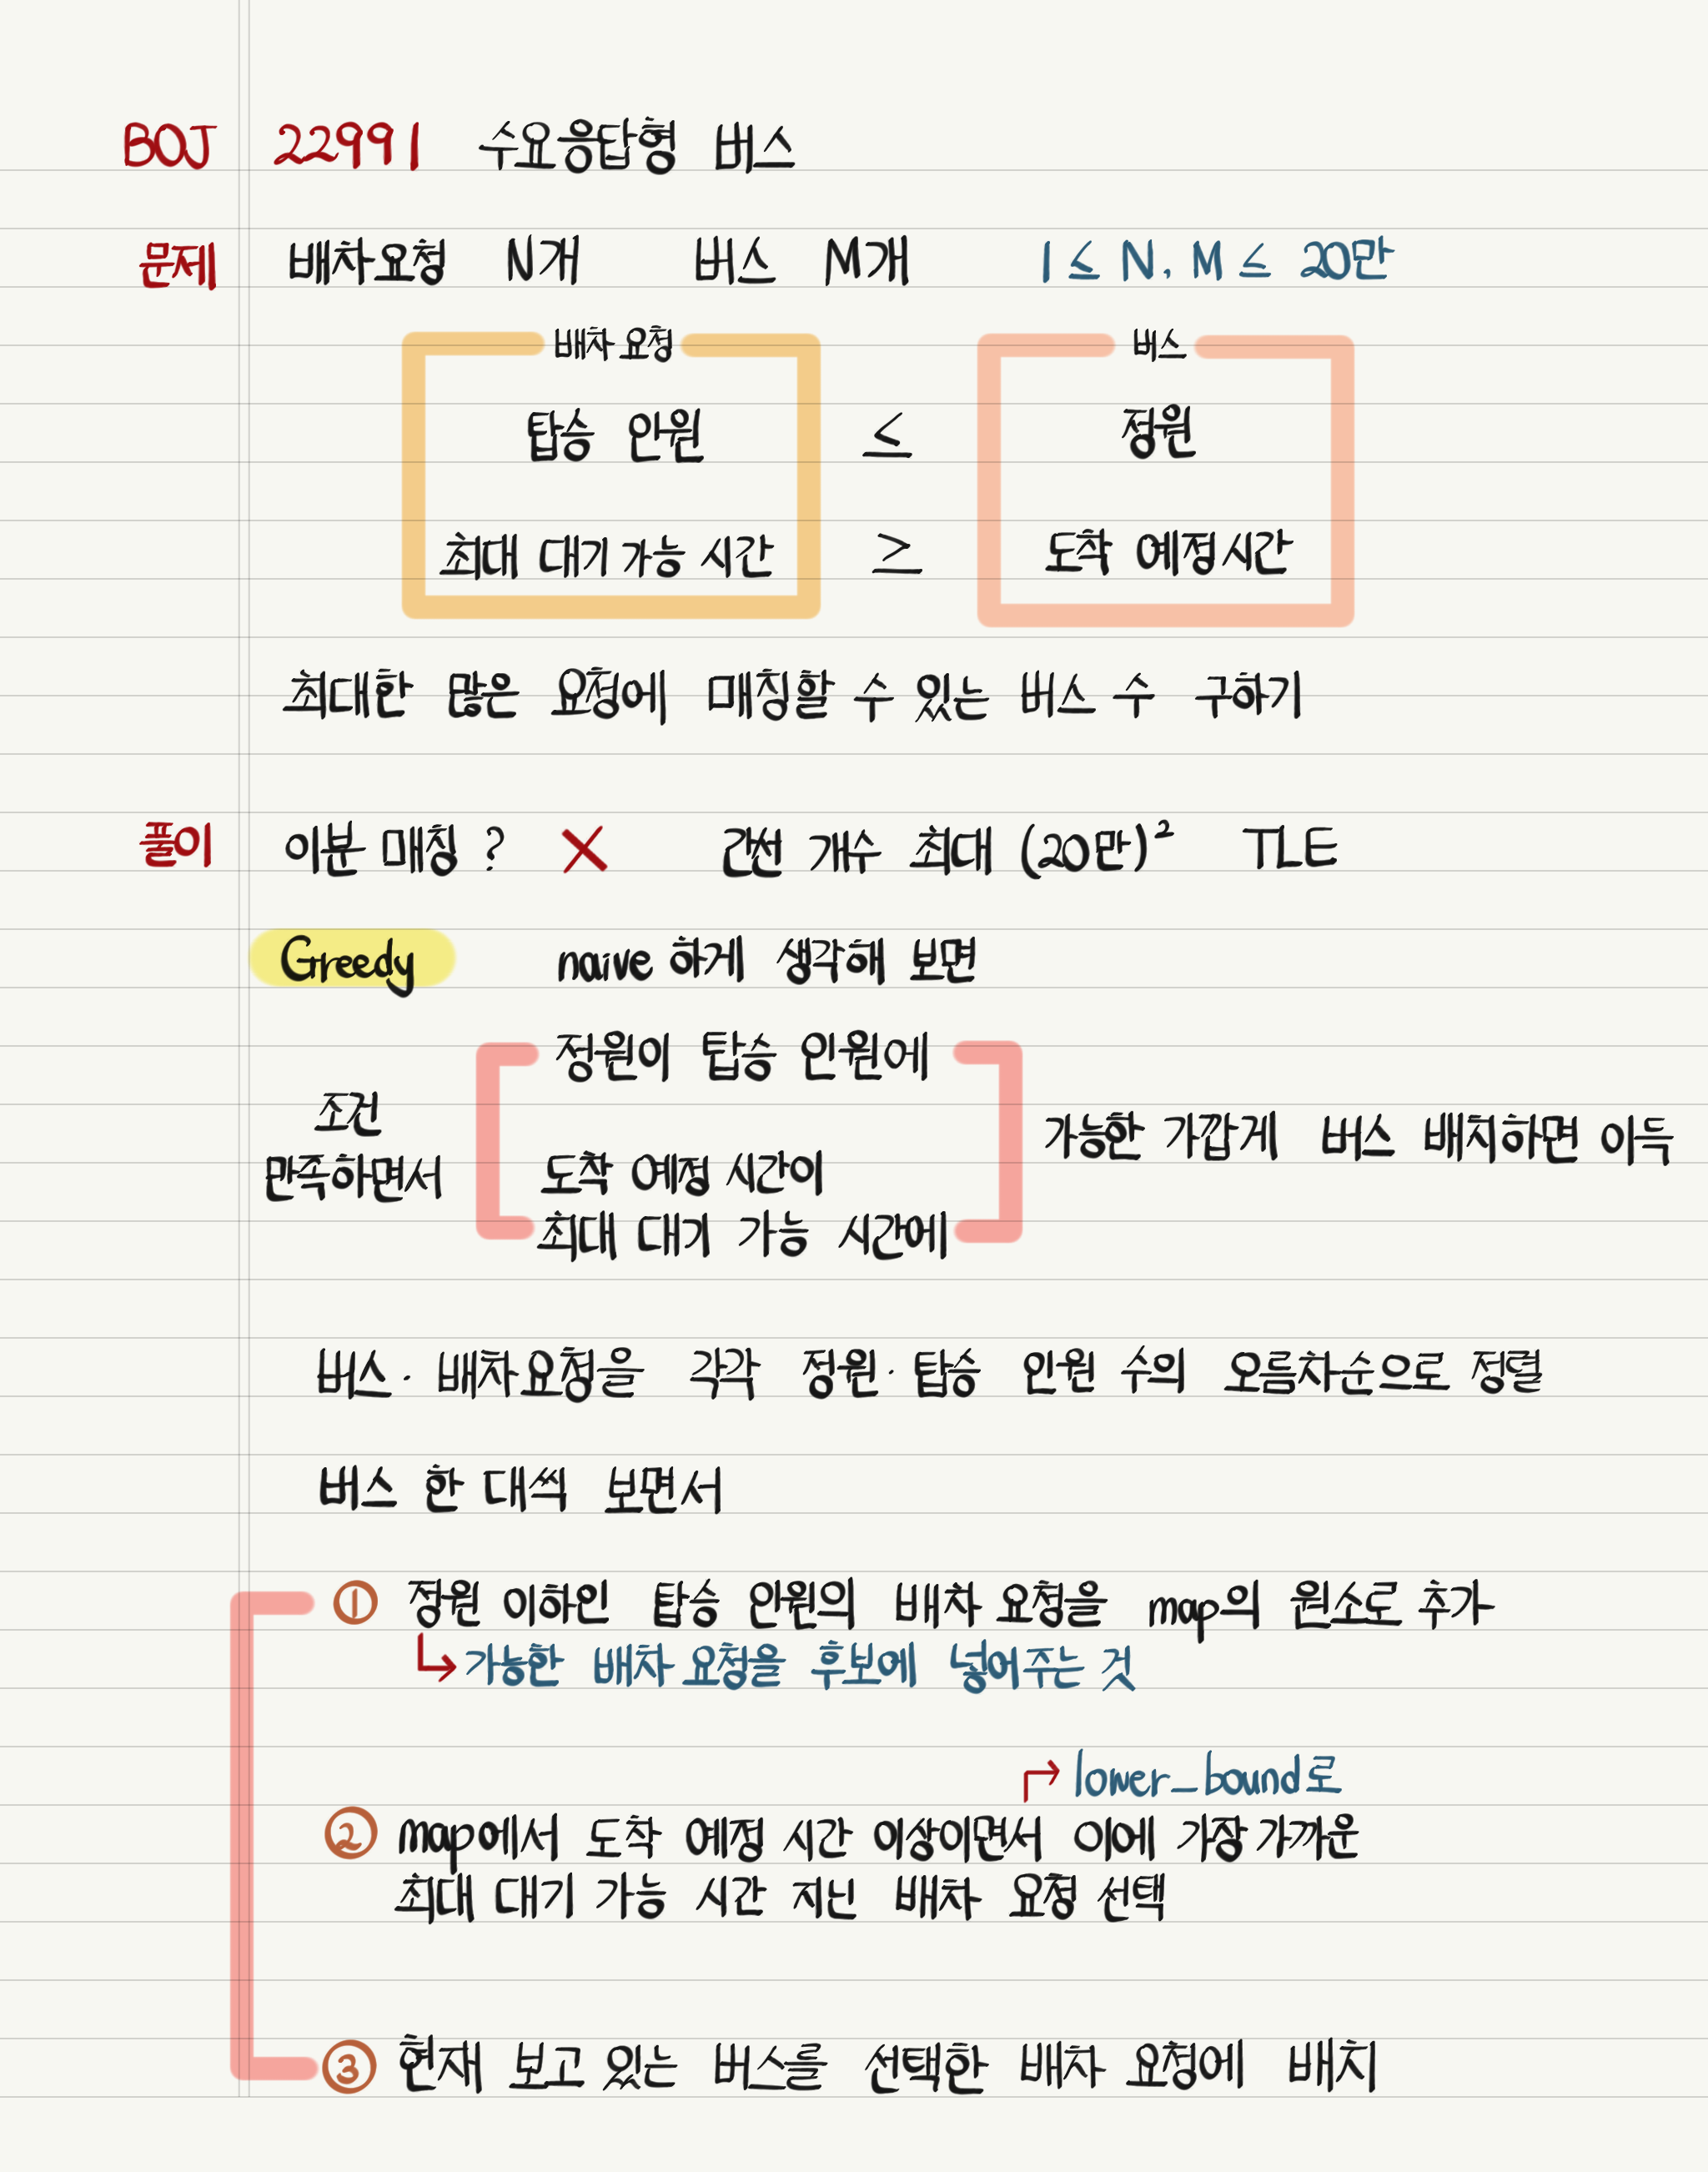 BOJ 22991 수요응답형 버스
문제 배차요청 N개 버스 M개 1 ≤ N, M ≤ 20만
배차 요청 버스
탑승 인원 ≤ 정원
최대 대기 가능 시간 ≥ 도착 예정시간
최대한 많은 요청에 매칭할 수 있는 버스 수 구하기
풀이 이분 매칭 ? X 간선 개수 최대 (20만)² TLE
Greedy naive 하게 생각해 보면
정원이 탑승 인원에
조건
만족하면서
도착 예정 시간이
최대 대기 가능 시간에
가능한 가깝게 버스 배치하면 이득
버스·배차요청을 각각 정원·탑승 인원 수의 오름차순으로 정렬
버스 한 대씩 보면서
① 정원 이하인 탑승 인원의 배차 요청을 map의 원소로 추가
↳ 가능한 배차 요청을 후보에 넣어주는 것
↱ lower_bound로
② map에서 도착 예정 시간 이상이면서 이에 가장 가까운
최대 대기 가능 시간 지닌 배차 요청 선택
③ 현재 보고 있는 버스를 선택한 배차 요청에 배치